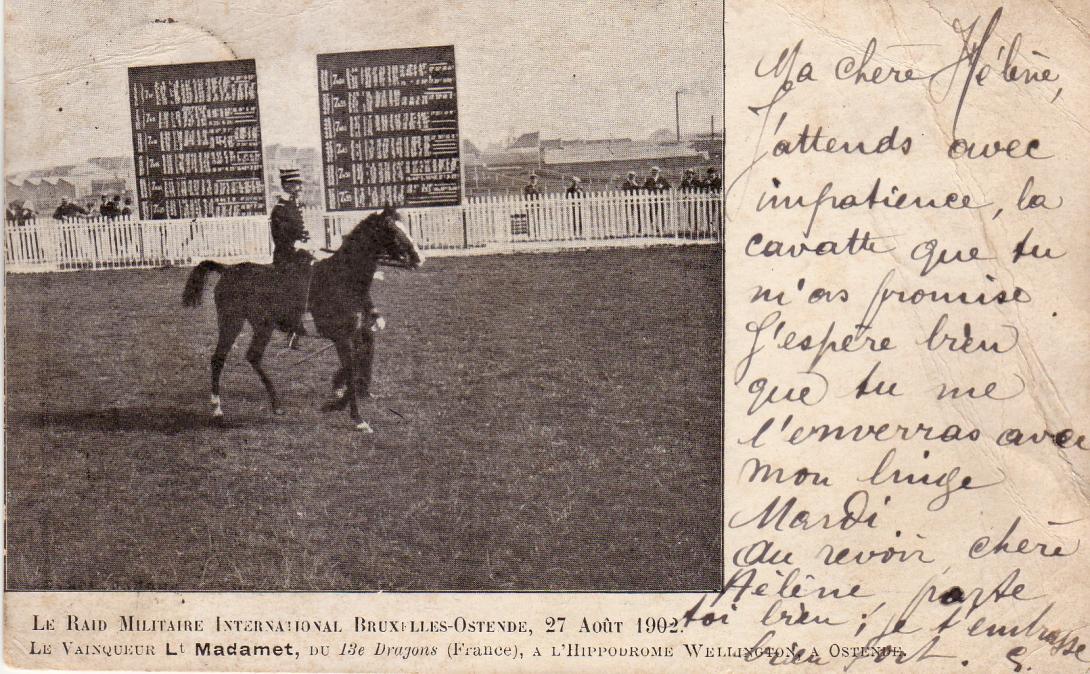 Ma chère Hélène,
J'attends avec
impatience, la
cavatte que tu
m'as promise
J'espère bien
que tu me
l'enverras avec
mon linge
Mardi
Au revoir, chère
Hélène, porte
toi bien ; je t'embrasse
bien fort. G.
LE RAID MILITAIRE INTERNATIONAL BRUXELLES-OSTENDE, 27 AOÛT 1902.
LE VAINQUEUR Lt Madamet, DU 13e Dragons (France), A L'HIPPODROME WELLINGTON, A OSTENDE.